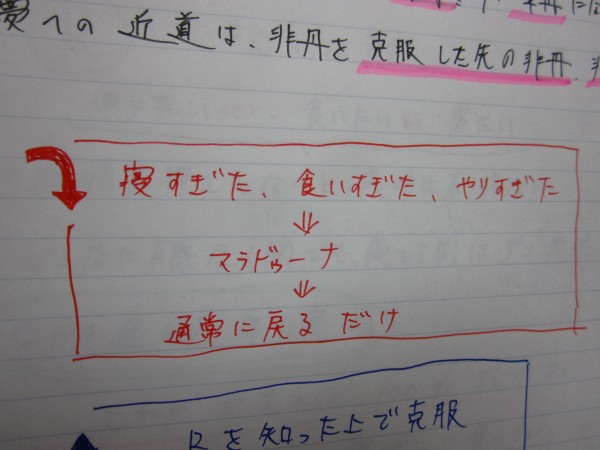 夢への近道は、非丹を克服した先の非丹、
寝すぎた、食いすぎた、やりすぎた
⇓
マラドゥーナ
⇓
通常に戻るだけ
を知った上で克服